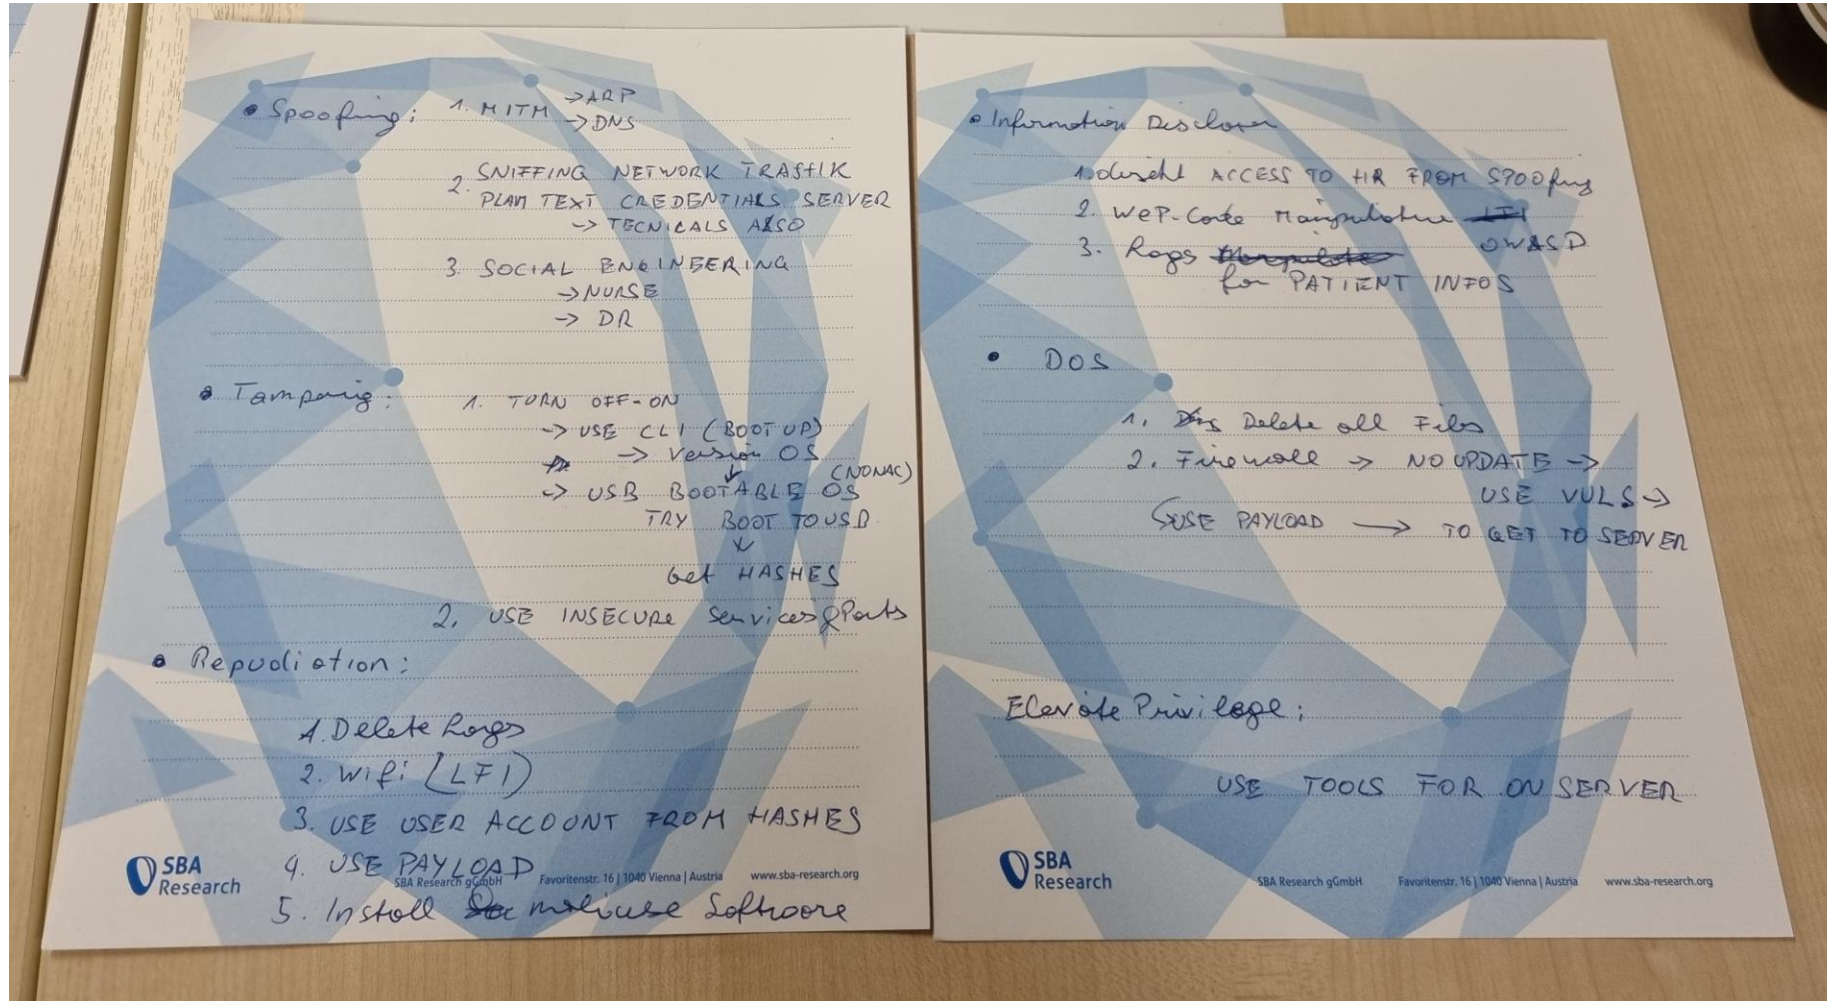 • Spoofing: 1. MITM → ARP
→ DNS
2. SNIFFING NETWORK TRAFFIK
PLAIN TEXT CREDENTIALS SERVER
→ TECNICALS ALSO
3. SOCIAL ENGINEERING
→ NURSE
→ DR
• Tamparig: 1. TURN OFF-ON
→ USE CLI (BOOT UP)
→ Version OS
(NONAC)
→ USB BOOTABLE OS
TRY BOOT TO USB
Get HASHES
2. USE INSECURE Services & Ports
• Repudiation:
1. Delete Logs
2. Wifi (LFI)
3. USE USER ACCOUNT FROM HASHES
4. USE PAYLOAD
5. Install malicuse Software
SBA
Research
SBA Research gGmbH Favoritenstr. 16 | 1040 Vienna | Austria www.sba-research.org
• Information Discloser
1. ACCESS TO HR FROM SPOOfing
2. WeP-Code Manipulation LFI
OWASP
3. Logs
for PATIENT INFOS
• DOS
1. Delete all Files
2. Firewall → NO UPDATE →
USE VULS →
USE PAYLOAD → TO GET TO SERVER
Elevate Privilege:
USE TOOLS FOR ON SERVER
SBA
Research
SBA Research gGmbH Favoritenstr. 16 | 1040 Vienna | Austria www.sba-research.org